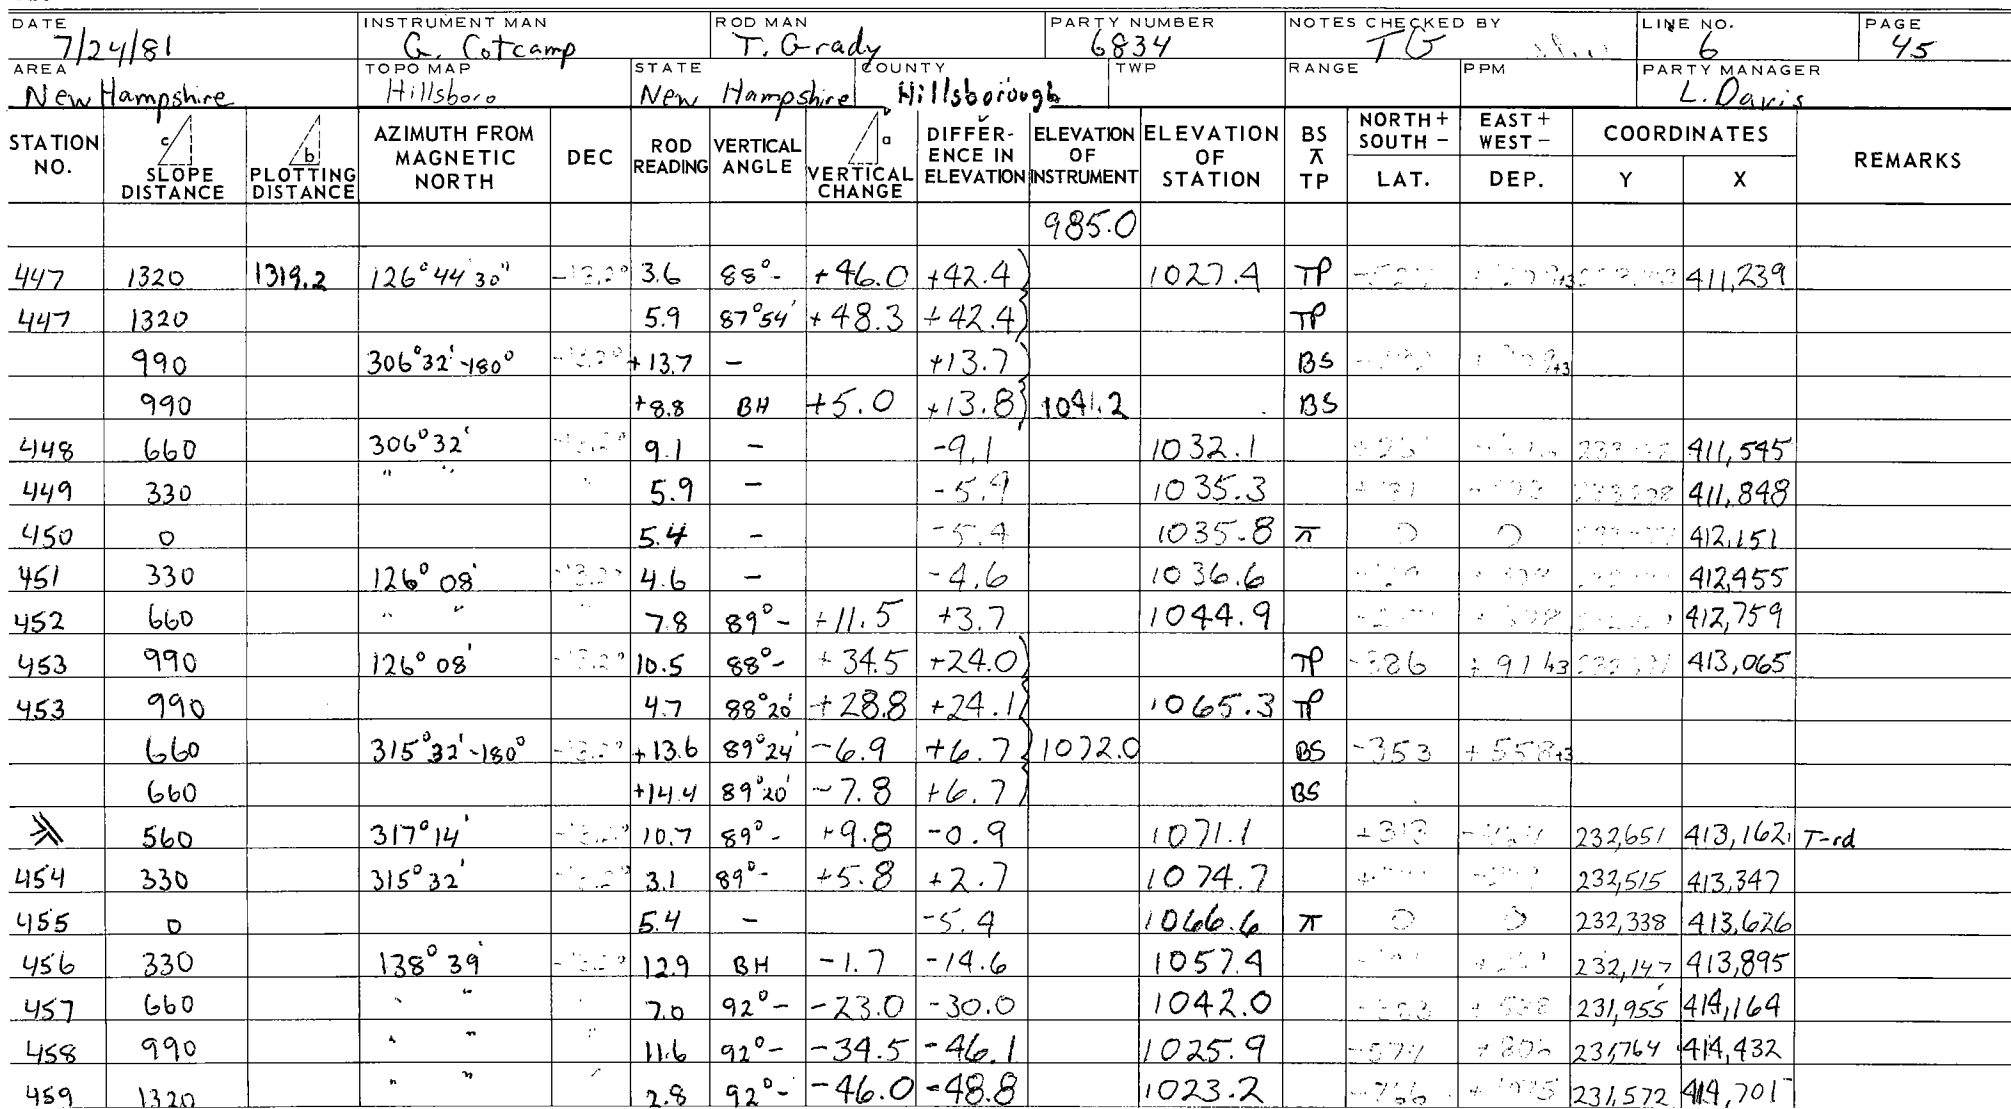 DATE INSTRUMENT MAN ROD MAN PARTY NUMBER NOTES CHECKED BY LINE NO. PAGE
7/24/81 G. Cotcamp T. Grady 6834 TG 6 45
AREA TOPO MAP STATE COUNTY TWP RANGE PPM PARTY MANAGER
New Hampshire Hillsboro New Hampshire Hillsborough L. Davis
STATION NO. c SLOPE DISTANCE b PLOTTING DISTANCE AZIMUTH FROM MAGNETIC NORTH DEC ROD READING VERTICAL ANGLE a VERTICAL CHANGE DIFFERENCE IN ELEVATION ELEVATION OF INSTRUMENT ELEVATION OF STATION BS ⊼ TP NORTH + SOUTH - LAT. EAST + WEST - DEP. COORDINATES Y X REMARKS
985.0
447 1320 1319.2 126° 44' 30" -13.2° 3.6 88°- +46.0 +42.4 1027.4 TP 411,239
447 1320 5.9 87°54' +48.3 +42.4 TP
990 306°32'-180° -13.2° +13.7 - +13.7 BS
990 +8.8 BH +5.0 +13.8 1041.2 BS
448 660 306°32' -13.2° 9.1 - -9.1 1032.1 411,545
449 330 " " " 5.9 - -5.9 1035.3 411,848
450 0 5.4 - -5.4 1035.8 ⊼ 0 0 412,151
451 330 126° 08' -13.2° 4.6 - -4.6 1036.6 412,455
452 660 " " " 7.8 89°- +11.5 +3.7 1044.9 412,759
453 990 126° 08' -13.2° 10.5 88°- +34.5 +24.0 TP +914+3 413,065
453 990 4.7 88°20' +28.8 +24.1 1065.3 TP
660 315°32'-180° -13.2° +13.6 89°24' -6.9 +6.7 1072.0 BS -353 +558+3
660 +14.4 89°20' -7.8 +6.7 BS
560 317°14' -13.2° 10.7 89°- +9.8 -0.9 1071.1 +313 232,651 413,162 T-rd
454 330 315°32' -13.2° 3.1 89°- +5.8 +2.7 1074.7 232,515 413,347
455 0 5.4 - -5.4 1066.6 ⊼ 0 0 232,338 413,626
456 330 138° 39' -13.2° 12.9 BH -1.7 -14.6 1057.4 232,147 413,895
457 660 " " 7.0 92°- -23.0 -30.0 1042.0 231,955 414,164
458 990 " " " 11.6 92°- -34.5 -46.1 1025.9 231,764 414,432
459 1320 " " " 2.8 92°- -46.0 -48.8 1023.2 -766 231,572 414,701